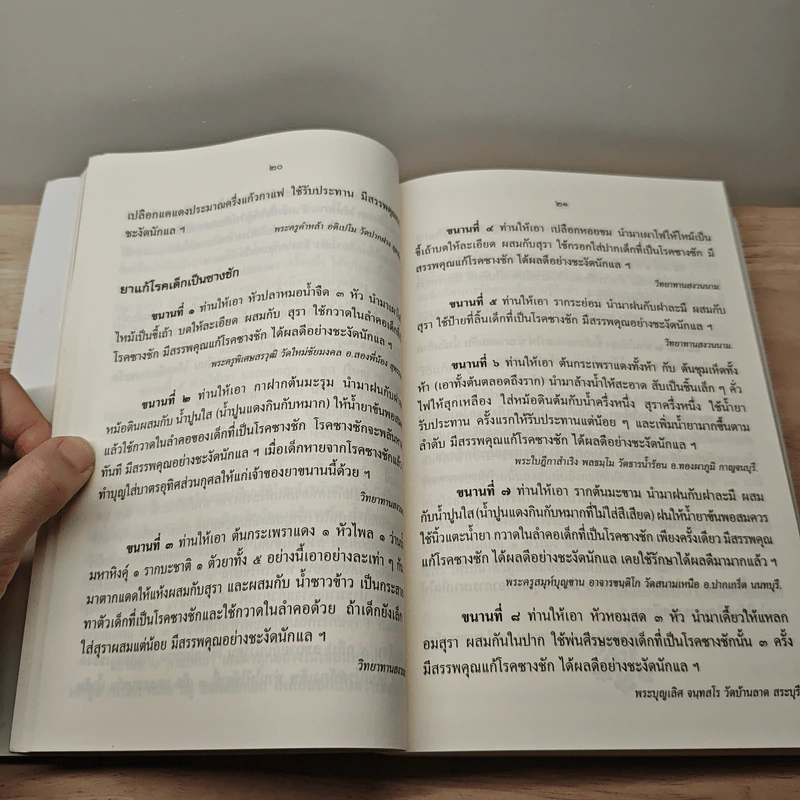 ๒๐
เปลือกแคแดงประมาณครึ่งแก้วกาแฟ ใช้รับประทาน มีสรรพคุณ
ชะงัดนักแล ฯ
พระครูคำหล้า อดิเปโม วัดปากฝาง
ยาแก้โรคเด็กเป็นซางชัก
ขนานที่ ๑ ท่านให้เอา หัวปลาหมอน้ำจืด ๓ หัว นำมาเผาไฟ
ไหม้เป็นขี้เถ้า บดให้ละเอียด ผสมกับ สุรา ใช้กวาดในลำคอเด็กที่
โรคซางชัก มีสรรพคุณแก้โรคซางชัก ได้ผลดีอย่างชะงัดนักแล ฯ
พระครูพิเศษสรวุฒิ วัดใหม่ชัยมงคล อ.สองพี่น้อง
ขนานที่ ๒ ท่านให้เอา กาฝากต้นมะรุม นำมาฝนกับฝา
หม้อดินผสมกับ น้ำปูนใส (น้ำปูนแดงกินกับหมาก) ให้น้ำยาข้นพอสม
แล้วใช้กวาดในลำคอของเด็กที่เป็นโรคซางชัก โรคซางชักจะพลันหาย
ทันที มีสรรพคุณอย่างชะงัดนักแล ฯ เมื่อเด็กหายจากโรคซางชักแล้ว
ทำบุญใส่บาตรอุทิศส่วนกุศลให้แก่เจ้าของยาขนานนี้ด้วย ฯ
วิทยาทานสงวน
ขนานที่ ๓ ท่านให้เอา ต้นกระเพราแดง ๑ หัวไพล ๑ ว่าน
มหาหิงคุ์ ๑ รากบะชาติ ๑ ตัวยาทั้ง ๕ อย่างนี้เอาอย่างละเท่า ๆ กัน
มาตากแดดให้แห้งผสมกับสุรา และผสมกับ น้ำซาวข้าว เป็นกระสาย
ทาตัวเด็กที่เป็นโรคซางชักและใช้กวาดในลำคอด้วย ถ้าเด็กยังเล็ก
ใส่สุราผสมแต่น้อย มีสรรพคุณอย่างชะงัดนักแล ฯ
วิทยาทานสงวน
๒๑
ขนานที่ ๔ ท่านให้เอา เปลือกหอยขม นำมาเผาไฟให้ไหม้เป็น
ขี้เถ้าบดให้ละเอียด ผสมกับสุรา ใช้กรอกใส่ปากเด็กที่เป็นโรคซางชัก มี
สรรพคุณแก้โรคซางชัก ได้ผลดีอย่างชะงัดนักแล ฯ
วิทยาทานสงวนนาม.
ขนานที่ ๕ ท่านให้เอา รากระย่อม นำมาฝนกับฝาละมี ผสมกับ
สุรา ใช้ป้ายที่ลิ้นเด็กที่เป็นโรคซางชัก มีสรรพคุณอย่างชะงัดนักแล ฯ
วิทยาทานสงวนนาม.
ขนานที่ ๖ ท่านให้เอา ต้นกระเพราแดงทั้งห้า กับ ต้นชุมเห็ดทั้ง
ห้า (เอาทั้งต้นตลอดถึงราก) นำมาล้างน้ำให้สะอาด สับเป็นชิ้นเล็ก ๆ คั่ว
ไฟให้สุกเหลือง ใส่หม้อดินต้มกับน้ำครึ่งหนึ่ง สุราครึ่งหนึ่ง ใช้น้ำยา
รับประทาน ครั้งแรกให้รับประทานแต่น้อย ๆ และเพิ่มน้ำยามากขึ้นตาม
ลำดับ มีสรรพคุณแก้โรคซางชัก ได้ผลดีอย่างชะงัดนักแล ฯ
พระใบฎีกาสำเริง พลธมฺโม วัดธารน้ำร้อน อ.ทองผาภูมิ กาญจนบุรี.
ขนานที่ ๗ ท่านให้เอา รากต้นมะขาม นำมาฝนกับฝาละมี ผสม
กับน้ำปูนใส (น้ำปูนแดงกินกับหมากที่ไม่ใส่สีเสียด) ฝนให้น้ำยาข้นพอสมควร
ใช้นิ้วแตะน้ำยา กวาดในลำคอเด็กที่เป็นโรคซางชัก เพียงครั้งเดียว มีสรรพคุณ
แก้โรคซางชัก ได้ผลดีอย่างชะงัดนักแล เคยใช้รักษาได้ผลดีมามากแล้ว ฯ
พระครูสมุห์บุญขาน อาจารขนฺติโก วัดสนามเหนือ อ.ปากเกร็ด นนทบุรี.
ขนานที่ ๘ ท่านให้เอา หัวหอมสด ๓ หัว นำมาเคี้ยวให้แหลก
อมสุรา ผสมกันในปาก ใช้พ่นศีรษะของเด็กที่เป็นโรคซางชักนั้น ๓ ครั้ง
มีสรรพคุณแก้โรคซางชัก ได้ผลดีอย่างชะงัดนักแล ฯ
พระบุญเลิศ จนฺทสโร วัดบ้านลาด สระบุรี